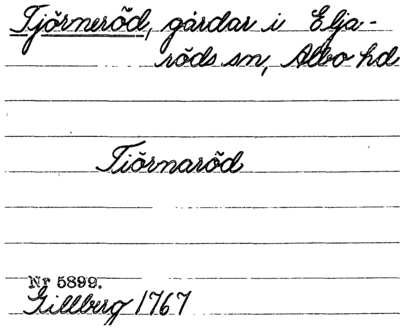 Tjörneröd, gårdar i Elja-
röds sn, Albo hd
Tiörnaröd
Nr 5899.
Gillberg 1767